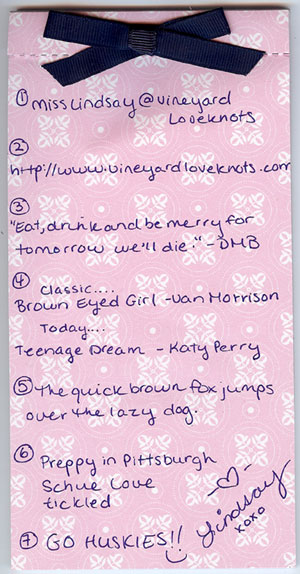 ① Miss Lindsay @ Vineyard
Loveknots
②
http://www.vineyardloveknots.com
③
"Eat, drink and be merry for
tomorrow we'll die." - DMB
④ Classic....
Brown Eyed Girl - Van Morrison
Today....
Teenage Dream - Katy Perry
⑤ The quick brown fox jumps
over the lazy dog.
⑥ Preppy in Pittsburgh
Schue Love
tickled
⑦ GO HUSKIES!!
Lindsay
xoxo